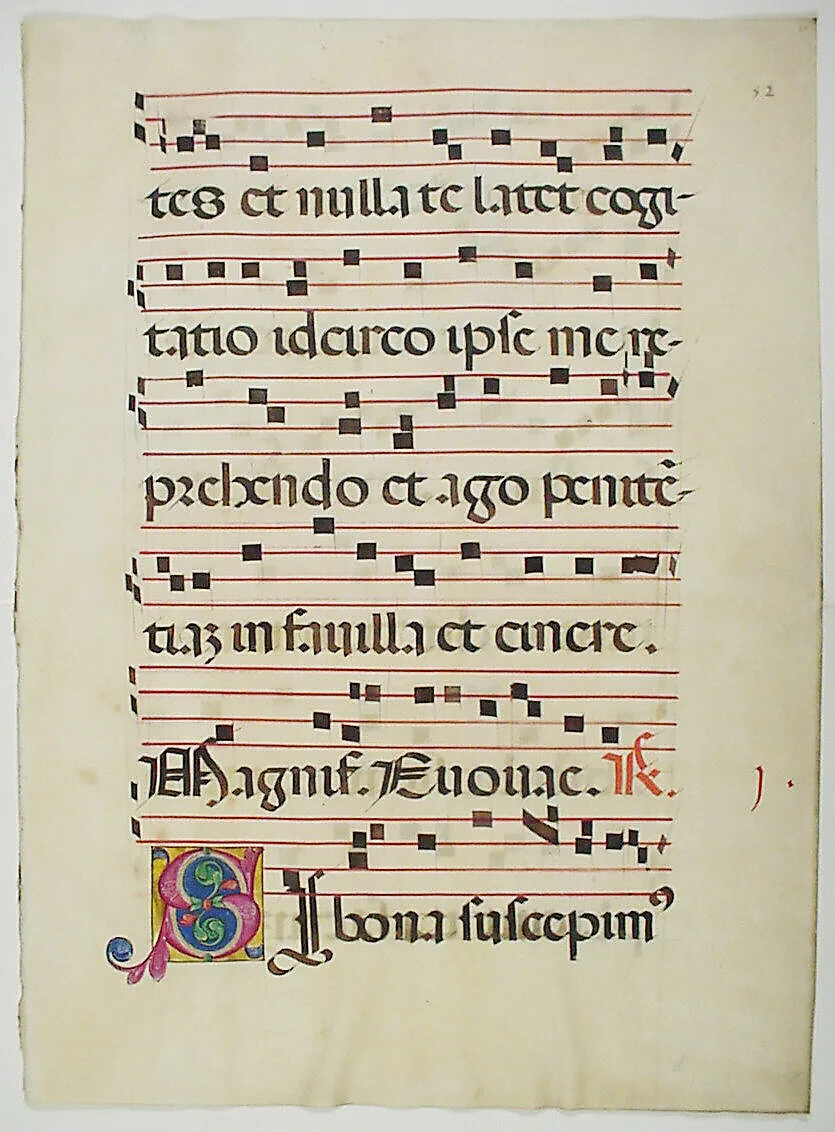 52
tes et nulla te latet cogi-
tatio idcirco ipse me re-
prehendo et ago penitē-
tiaʒ in fauilla et cinere.
Magnif. Euouae. R. j.
SI bona suscepimꝰ